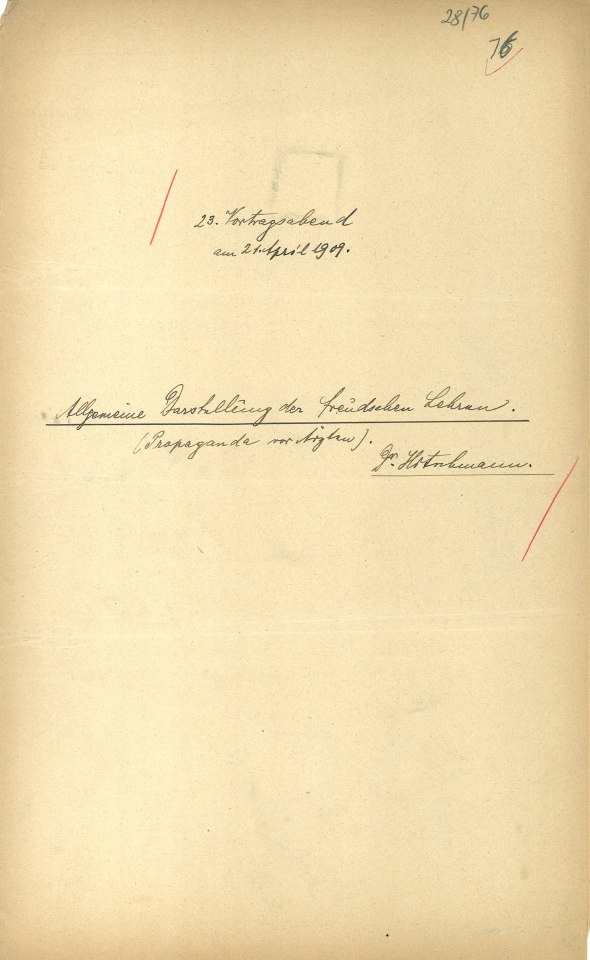 28/76
76
23. Vortragsabend
am 21. April 1909.
Allgemeine Darstellung der Freudschen Lehren.
(Propaganda vor Ärzten).
Dr. Hitschmann.